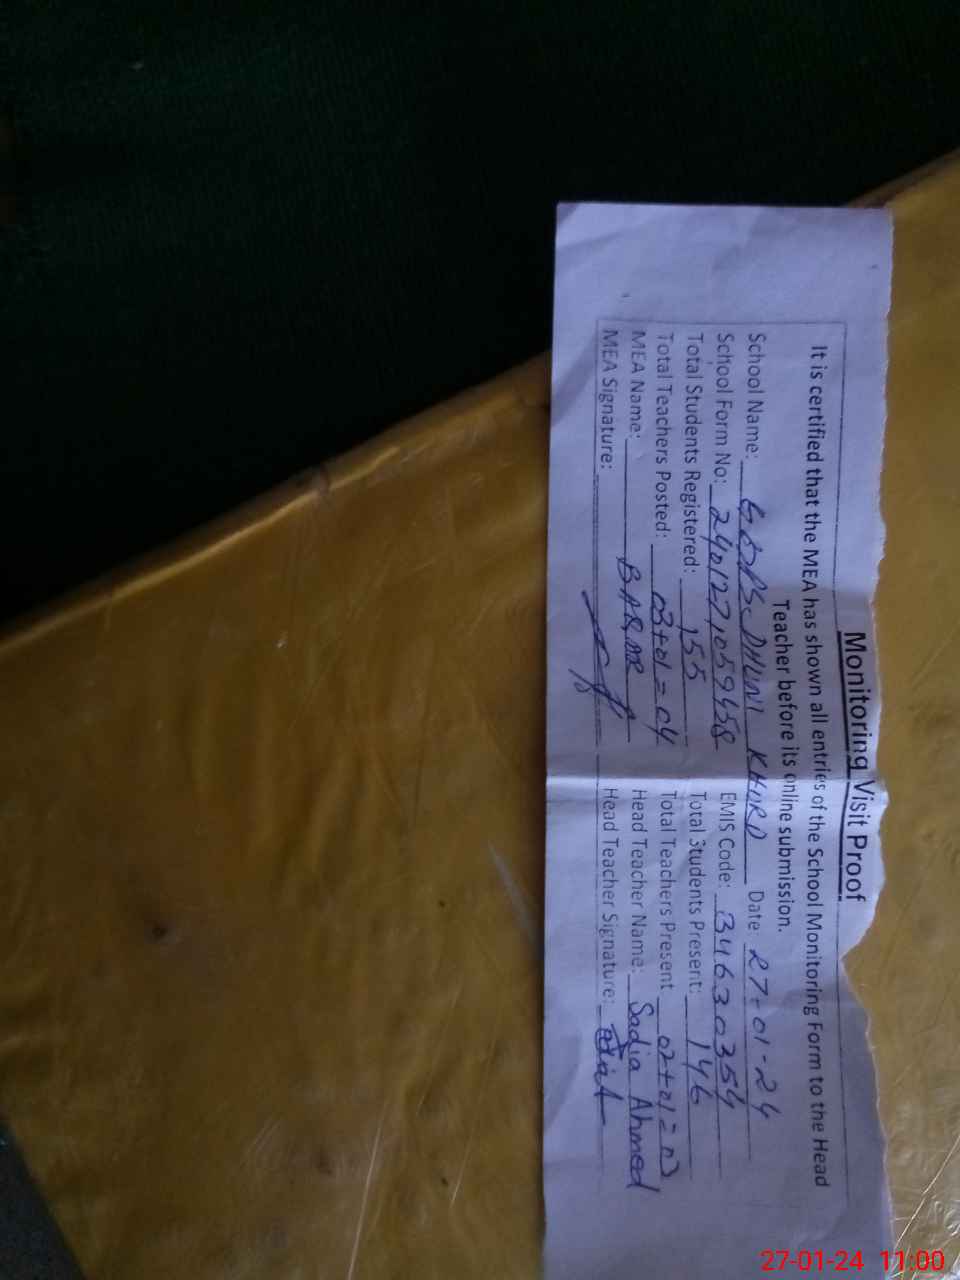 Monitoring Visit Proof
It is certified that the MEA has shown all entries of the School Monitoring Form to the Head
Teacher before its online submission.
School Name: DHUNI KHURD Date: 27-01-24
School Form No: EMIS Code: 34630354
Total Students Registered: 155 Total Students Present: 146
Total Teachers Posted: 03+01=04 Total Teachers Present 02+01=03
MEA Name: Head Teacher Name: Sadia Ahmed
MEA Signature: Head Teacher Signature:
27-01-24 11:00